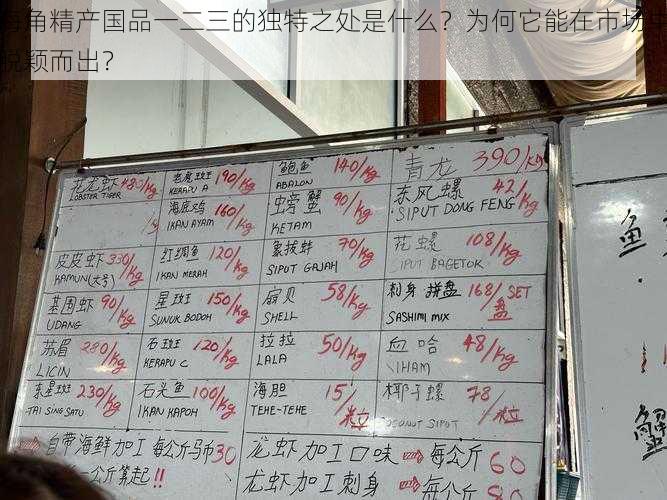 角精产国品一二三的独特之处是什么？为何它能在市场中
脱颖而出？
花龙虾 480/kg
LOBSTER TIGER
老虎斑 190/kg
KERAPU A
鲍鱼 140/kg
ABALON
青龙 390/kg
海底鸡 160/kg
IKAN AYAM
螃蟹 90/kg
KETAM
东风螺 42/kg
SIPUT DONG FENG
皮皮虾 330/kg
KAMUN(大号)
红绸鱼 120/kg
IKAN MERAH
象拔蚌 70/kg
SIPUT GAJAH
花螺 108/kg
SIPUT BAGETOK
基围虾 90/kg
UDANG
星斑 150/kg
SUNUK BODOH
扇贝 58/kg
SHELL
刺身拼盘 168/SET
盘
SASHIMI MIX
苏眉 280/kg
LICIN
石斑 120/kg
KERAPU C
拉拉 50/kg
LALA
血哈 48/kg
SIHAM
东星斑 230/kg
TAI SING SATU
石头鱼 100/kg
IKAN KAPOH
海胆 15/粒
TEHE-TEHE
椰子螺 78/粒
COCONUT SIPUT
自带海鲜加工 每公斤马币30
一公斤算起!!
龙虾加工口味 每公斤 60
龙虾加工刺身 每公斤 80
鱼
蟹